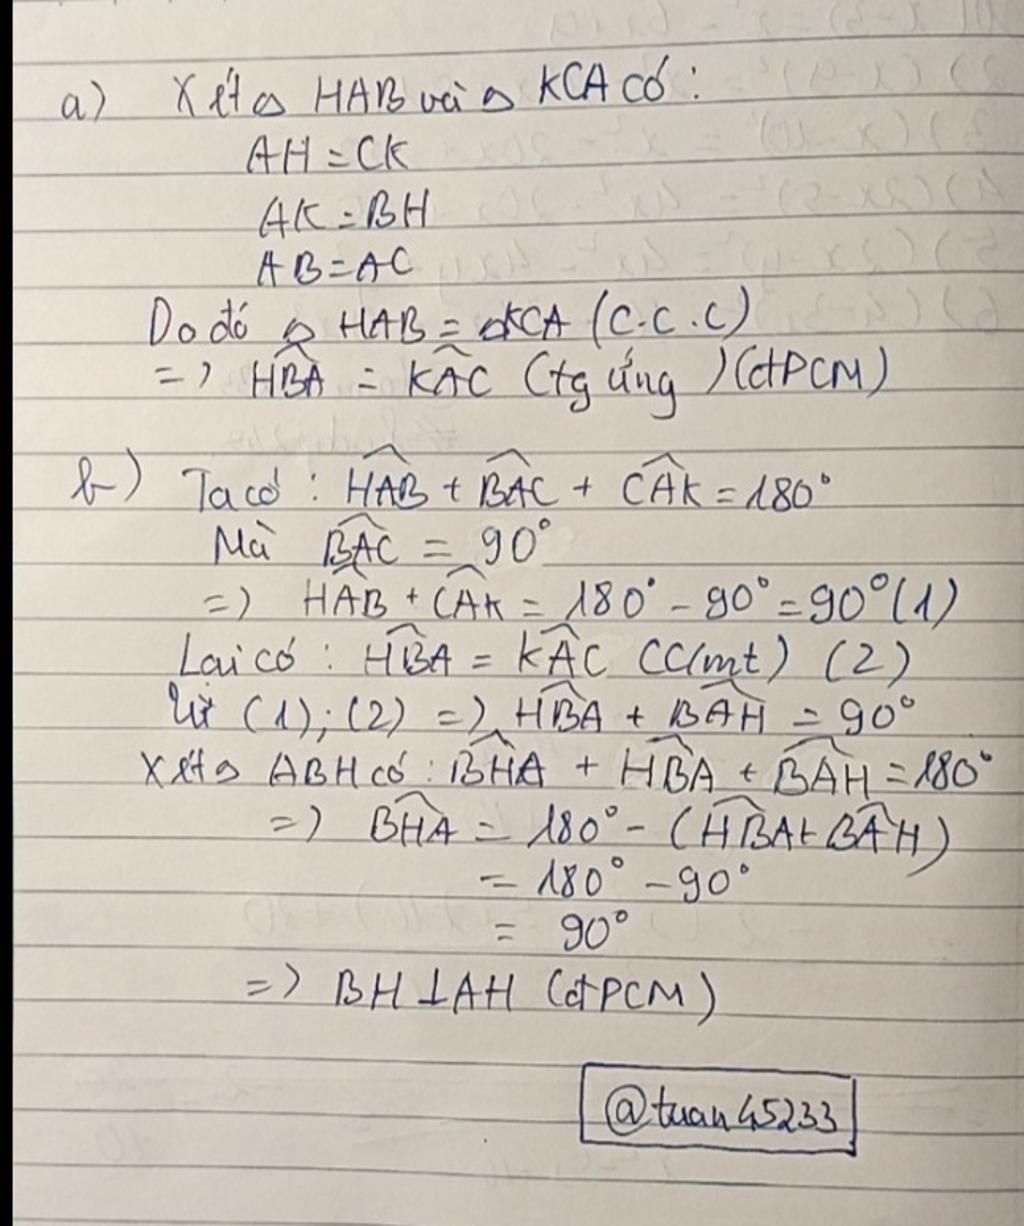 a) Xét △ HAB và △ KCA có :
AH = CK
AK = BH
AB = AC
Do đó △ HAB = △KCA (C.C.C)
=> HBA = KAC (tg ứng) (đPCM)
b) Ta có : HAB + BAC + CAK = 180°
Mà BAC = 90°
=> HAB + CAK = 180° - 90° = 90° (1)
Lại có : HBA = KAC (Cmt) (2)
Từ (1) ; (2) => HBA + BAH = 90°
Xét △ ABH có : BHA + HBA + BAH = 180°
=> BHA = 180° - (HBA + BAH)
= 180° - 90°
= 90°
=> BH ⊥ AH (đPCM)
@tuan45233